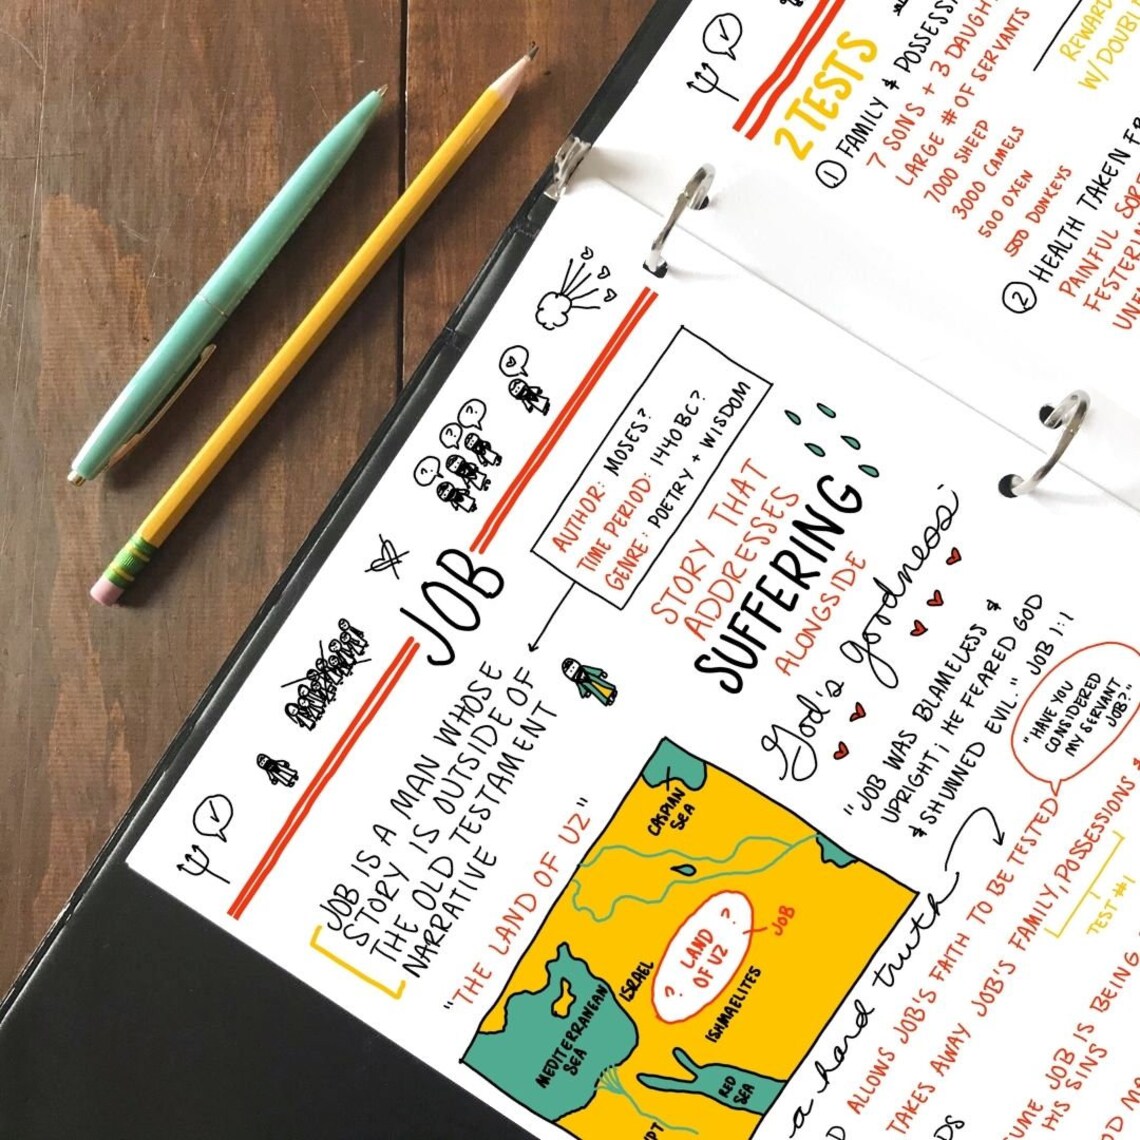 2 TESTS
① FAMILY & POSSESS
7 SONS + 3 DAUGH
LARGE # OF SERVANTS
7000 SHEEP
3000 CAMELS
500 OXEN
500 DONKEYS
REWARD
W/ DOUBL
② HEALTH TAKEN FR
PAINFUL SORE
FESTERIN
JOB
AUTHOR: MOSES?
TIME PERIOD: 1440 BC?
GENRE: POETRY + WISDOM
JOB IS A MAN WHOSE
STORY IS OUTSIDE OF
THE OLD TESTAMENT
NARRATIVE
STORY THAT
ADDRESSES
SUFFERING
ALONGSIDE
God's goodness:
"JOB WAS BLAMELESS &
UPRIGHT; HE FEARED GOD
& SHUNNED EVIL." JOB 1:1
"HAVE YOU
CONSIDERED
MY SERVANT
JOB?"
"THE LAND OF UZ"
CASPIAN
SEA
? LAND ?
OF UZ
JOB
ISRAEL
ISHMAELITES
MEDITERRANEAN
SEA
RED
SEA
PT
a hard truth
D ALLOWS JOB'S FAITH TO BE TESTED
TAKES AWAY JOB'S FAMILY, POSSESSIONS &
TEST #1
UME JOB IS BEING
HIS SINS
DS